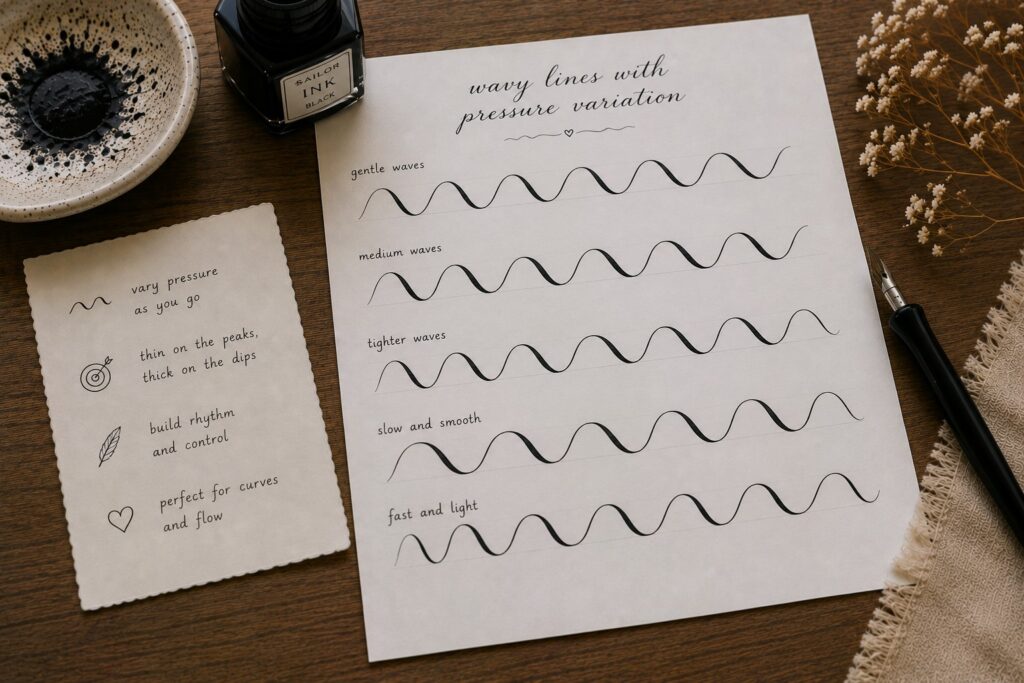 SAILOR
INK
BLACK
wavy lines with
pressure variation
gentle waves
medium waves
tighter waves
slow and smooth
fast and light
vary pressure
as you go
thin on the peaks,
thick on the dips
build rhythm
and control
perfect for curves
and flow